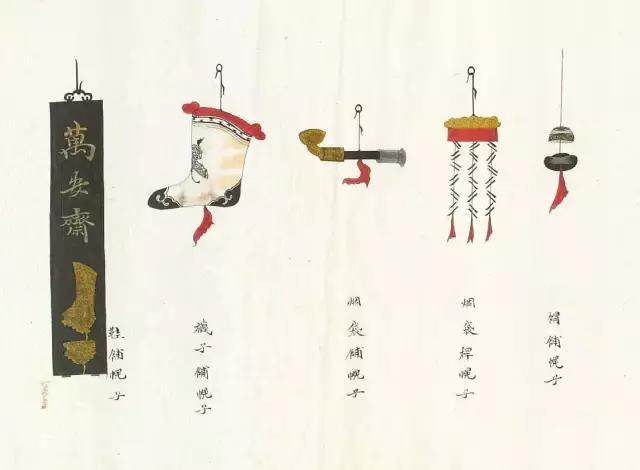 帽鋪幌子
烟袋桿幌子
烟袋鋪幌子
襪子鋪幌子
鞋鋪幌子
萬安齋